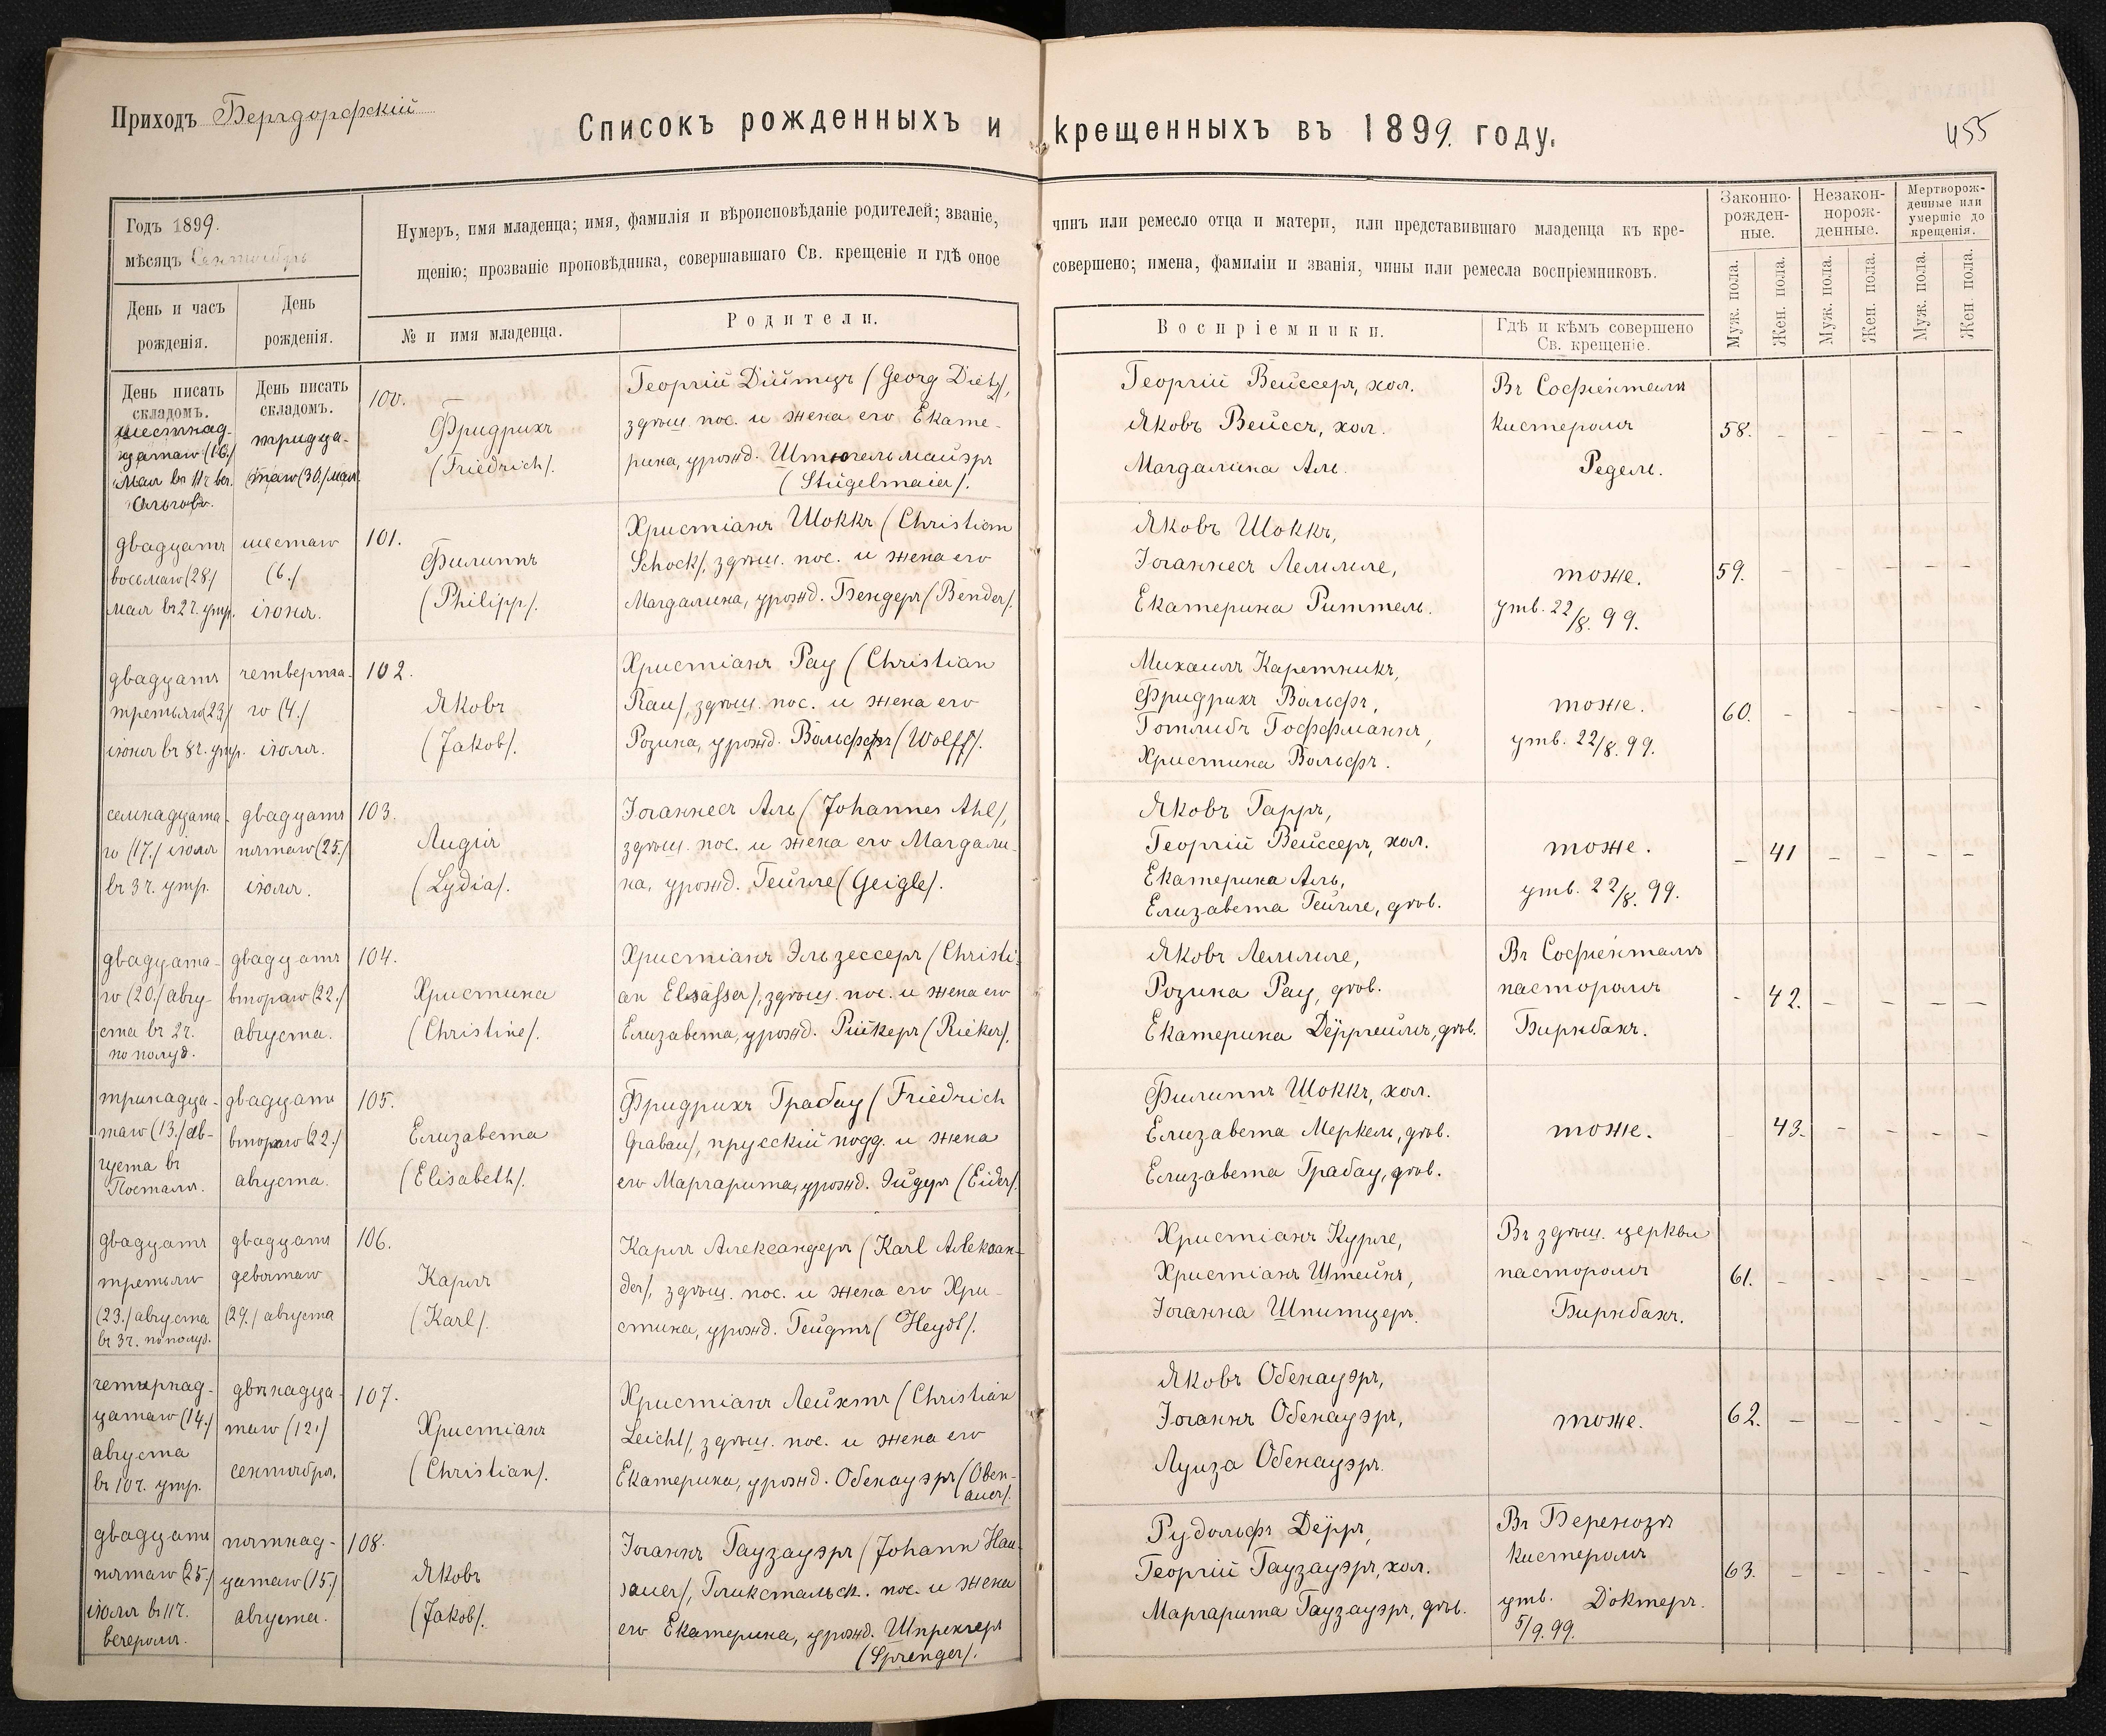 Приходъ Бергдорфскій
Списокъ рожденныхъ и крещенныхъ въ 1899. году.
455
Годъ 1899.
мѣсяцъ Сентябрь
Нумеръ, имя младенца; имя, фамилія и вѣроисповѣданіе родителей; званіе,
чинъ или ремесло отца и матери, или представившаго младенца къ кре-
щенію; прозваніе проповѣдника, совершавшаго Св. крещеніе и гдѣ оное
совершено; имена, фамиліи и званія, чины или ремесла воспріемниковъ.
Законно-
рожден-
ные.
Незакон-
норож-
денные.
Мертворож-
денные или
умершіе до
крещенія.
День и часъ
рожденія.
День
рожденія.
№ и имя младенца.
Родители.
Воспріемники.
Гдѣ и кѣмъ совершено
Св. крещеніе.
Муж. пола.
Жен. пола.
Муж. пола.
Жен. пола.
Муж. пола.
Жен. пола.
День писать
складомъ.
День писать
складомъ.
шестнад-
цатаго (16./
мая въ 11ч. веч.
тридца-
таго (30./ мая.
100.
Фридрихъ
(Friedrich/.
Георгій Дійтцъ (Georg Dietz/,
здѣш. пос. и жена его Екате-
рина, урожд. Штюгельмайэръ
(Stügelmaier/.
Георгій Вейссеръ, хол.
Яковъ Вейссъ, хол.
Магдалина Аль.
Въ Софіенталѣ
кистеромъ
Редель.
58. – – – – –
двадцать
восьмаго (28./
мая въ 2ч. утр.
шестаго
(6./
іюня.
101.
Филиппъ
(Philipp/.
Христіанъ Шоккъ (Christian
Schock/, здѣш. пос. и жена его
Магдалина, урожд. Бендеръ (Bender/.
Яковъ Шоккъ,
Іоганнесъ Леммле,
Екатерина Риттель.
тоже.
утв. 22/8. 99.
59. – – – – –
двадцать
третьяго (23./
іюня въ 8ч. утр.
четверта-
го (4./
іюля.
102.
Яковъ
(Jakob/.
Христіанъ Рау (Christian
Rau/, здѣш. пос. и жена его
Розина, урожд. Вольффъ (Wolff/.
Михаилъ Каретникъ,
Фридрихъ Вольфъ,
Готлибъ Гоффманнъ,
Христина Вольфъ.
тоже.
утв. 22/8. 99.
60. – – – – –
семнадцата-
го (17./ іюля
въ 3ч. утр.
двадцать
пятаго (25./
іюля.
103.
Лидія
(Lydia/.
Іоганнесъ Аль (Johannes Ahl/,
здѣш. пос. и жена его Магдали-
на, урожд. Гейгле (Geigle/.
Яковъ Гарръ,
Георгій Вейссеръ, хол.
Екатерина Аль,
Елизавета Гейгле, дѣв.
тоже.
утв. 22/8. 99.
– 41 – – – –
двадцата-
го (20./ авгу-
ста въ 2ч.
по полуд.
двадцать
втораго (22./
августа.
104.
Христина
(Christine/.
Христіанъ Эльзессеръ (Christi-
an Elsässer/, здѣш. пос. и жена его
Елизавета, урожд. Рійкеръ (Rieker/.
Яковъ Леммле,
Розина Рау, дѣв.
Екатерина Дёрргеймъ, дѣв.
Въ Софіенталѣ
пасторомъ
Бирнбакъ.
– 42. – – – –
тринадца-
таго (13./ ав-
густа въ
Посталѣ.
двадцать
втораго (22./
августа.
105.
Елизавета
(Elisabeth/.
Фридрихъ Грабау (Friedrich
Grabau/, прусскій подд. и жена
его Маргарита, урожд. Эйдеръ (Eider/.
Филиппъ Шоккъ, хол.
Елизавета Меркель, дѣв.
Елизавета Грабау, дѣв.
тоже.
– 43. – – – –
двадцать
третьяго
(23./ августа
въ 3ч. по полуд.
двадцать
девятаго
(29./ августа
106.
Карлъ
(Karl/.
Карлъ Александеръ (Karl Alexan-
der/, здѣш. пос. и жена его Хри-
стина, урожд. Гейдтъ (Heydt/.
Христіанъ Курле,
Христіанъ Штейнъ,
Іоганна Шпитцеръ.
Въ здѣш. церкви
пасторомъ
Бирнбакъ.
61. – – – – –
четырнад-
цатаго (14./
августа
въ 10ч. утр.
двѣнадца-
таго (12./
сентября.
107.
Христіанъ
(Christian/.
Христіанъ Лейхтъ (Christian
Leicht/, здѣш. пос. и жена его
Екатерина, урожд. Обенауэръ (Oben-
auer/.
Яковъ Обенауэръ,
Іоганнъ Обенауэръ,
Луиза Обенауэръ.
тоже.
62. – – – – –
двадцать
пятаго (25./
іюля въ 11ч.
вечеромъ.
пятнад-
цатаго (15./
августа.
108.
Яковъ
(Jakob/.
Іоганнъ Гаузауэръ (Johann Hau-
sauer/, Гликстальск. пос. и жена
его Екатерина, урожд. Шпренгеръ
(Sprenger/.
Рудольфъ Дёрръ,
Георгій Гаузауэръ, хол.
Маргарита Гаузауэръ, дѣв.
Въ Березозѣ
кистеромъ
утв. Доктеръ.
5/9. 99.
63. – – – – –